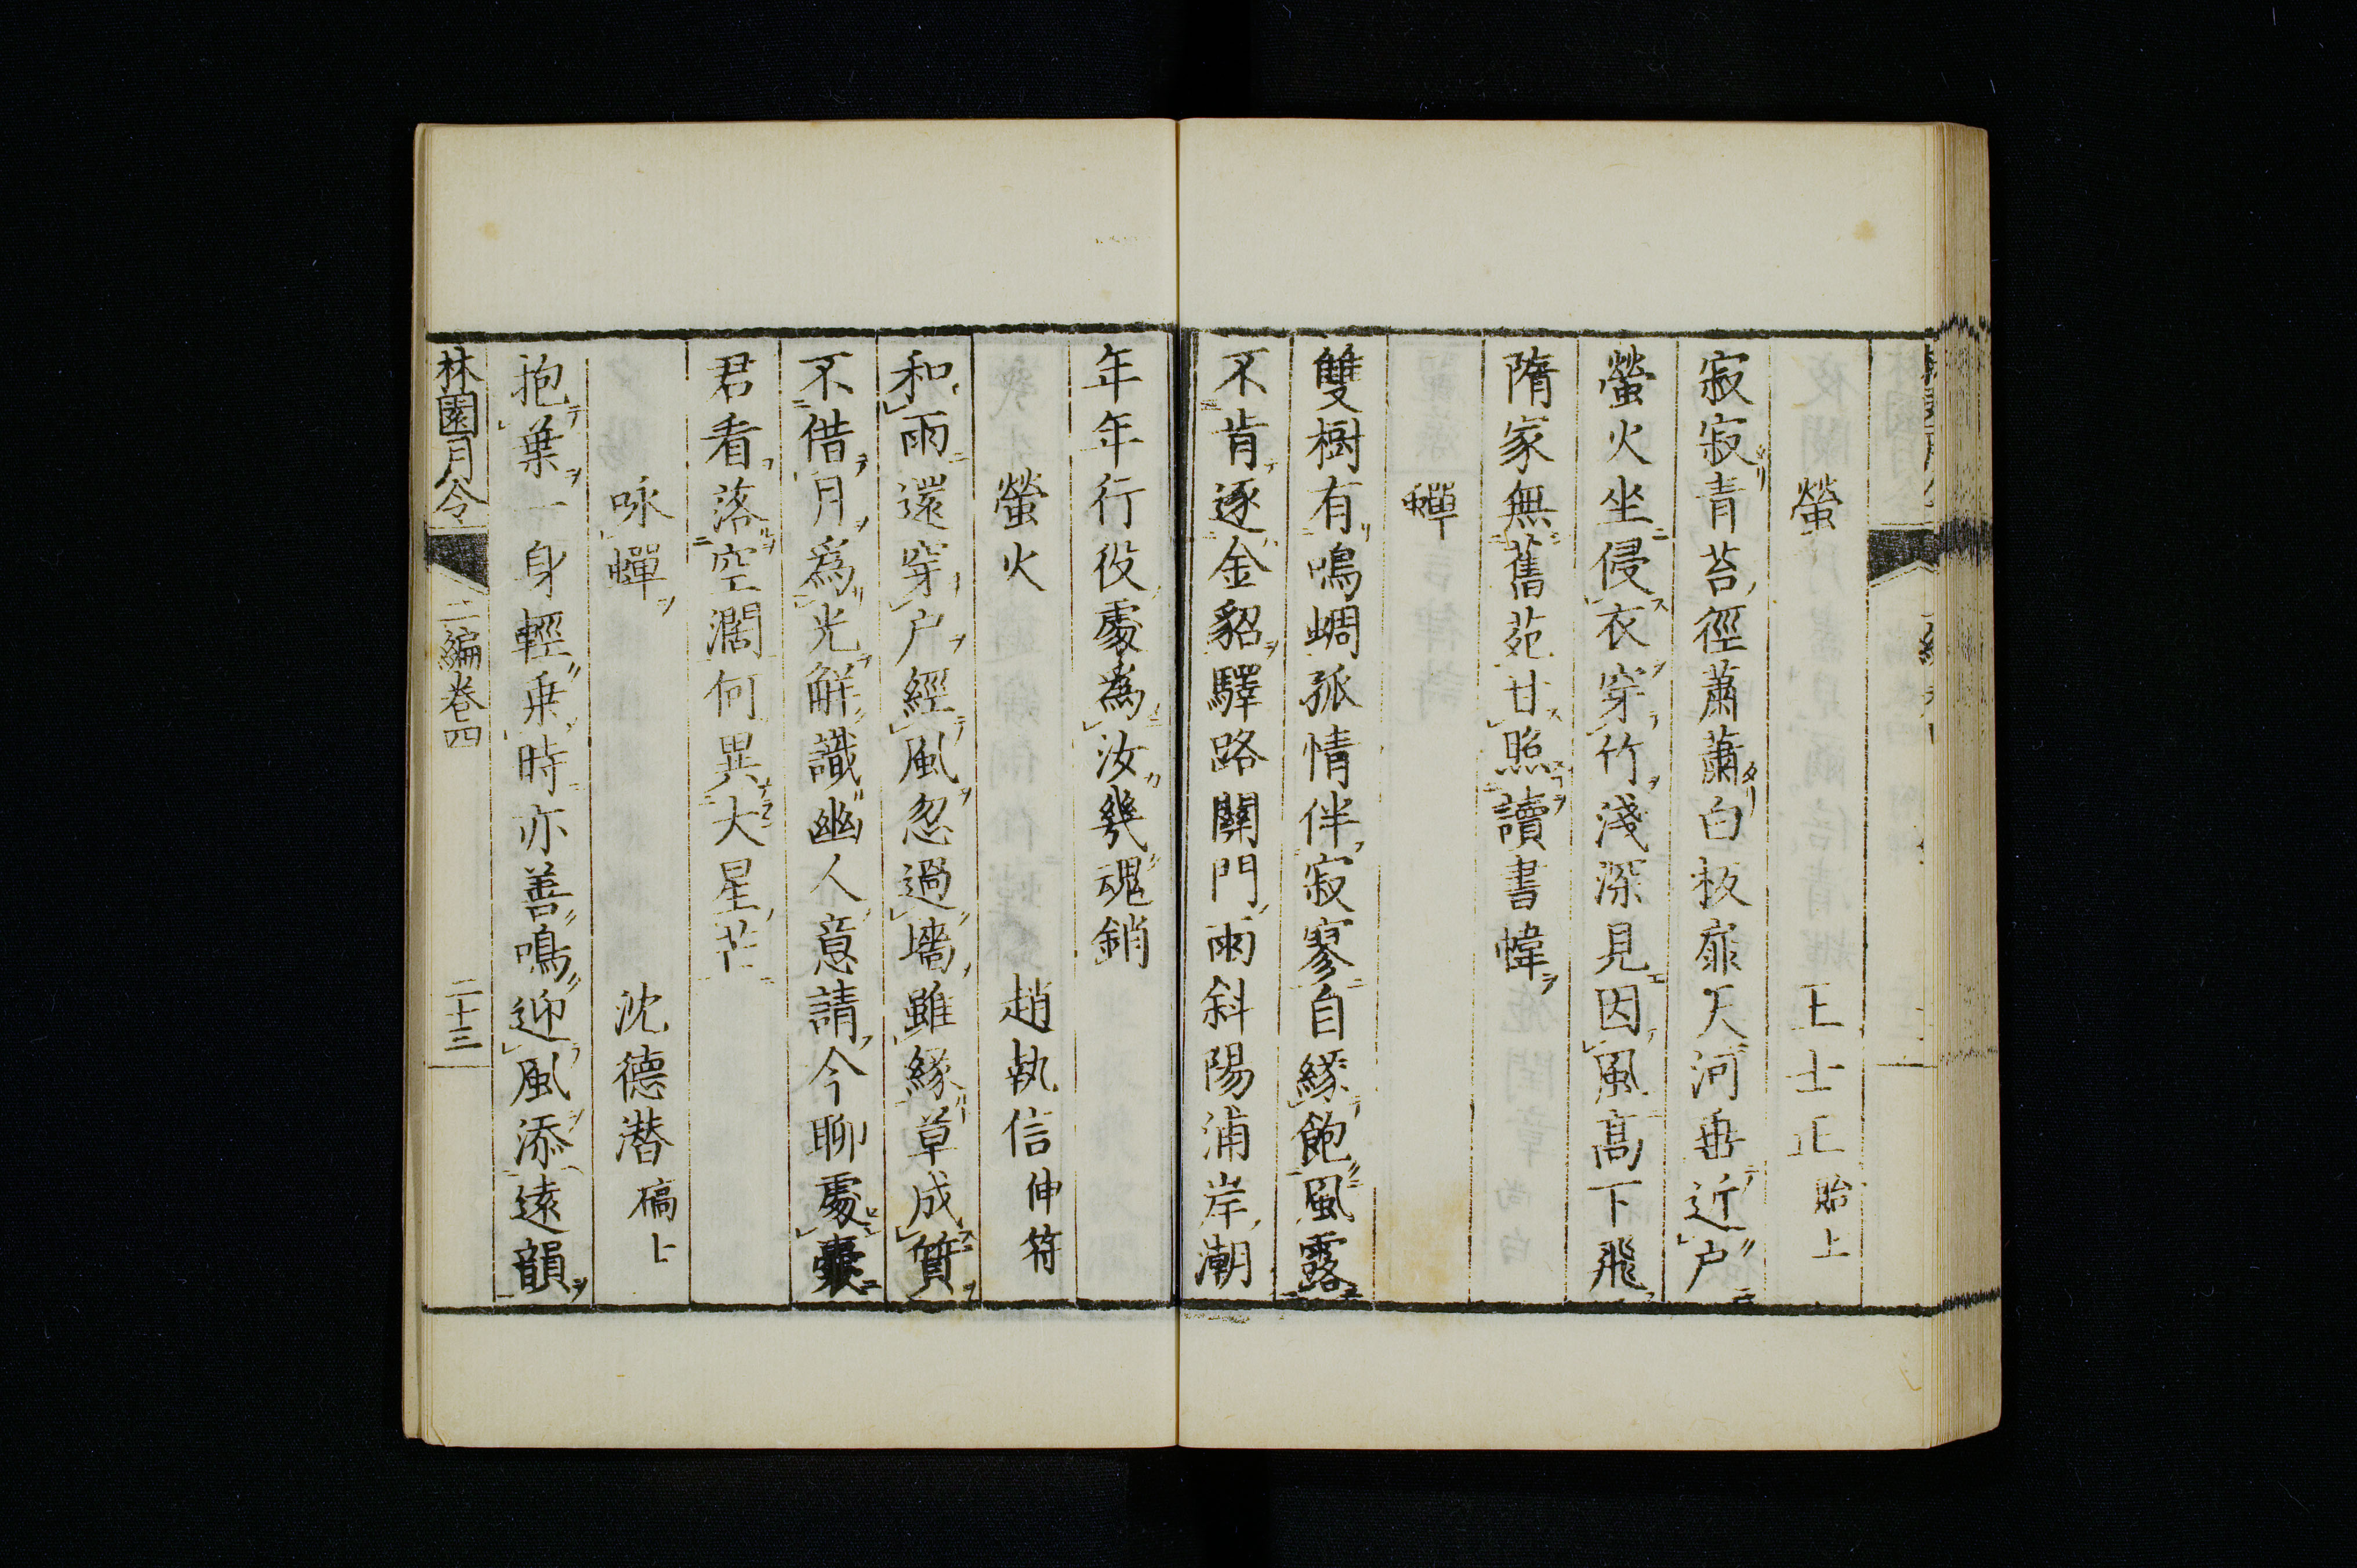 螢　王士正貽上
寂寂青苔徑蕭蕭白板扉天河垂近戸
螢火坐侵衣穿竹淺深見因風髙下飛
隋家無舊苑甘照讀書幃
蟬
雙樹有鳴蜩孤情伴寂寥自緣飽風露
不肯逐金貂驛路關門雨斜陽浦岸潮
年年行役處為汝幾魂銷
螢火　趙執信伸符
和雨還穿戸經風忽過墻雖緣草成質
不借月爲光解識幽人意請今聊處囊
君看落空濶何異大星芒
咏蟬　沈德潛碻士
抱葉一身輕乗時亦善鳴迎風添遠韻
林園月令　二編卷四　二十三